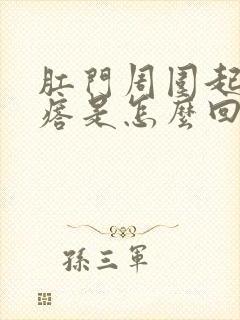 肛門周圍起
痞是怎麼回
孫三軍